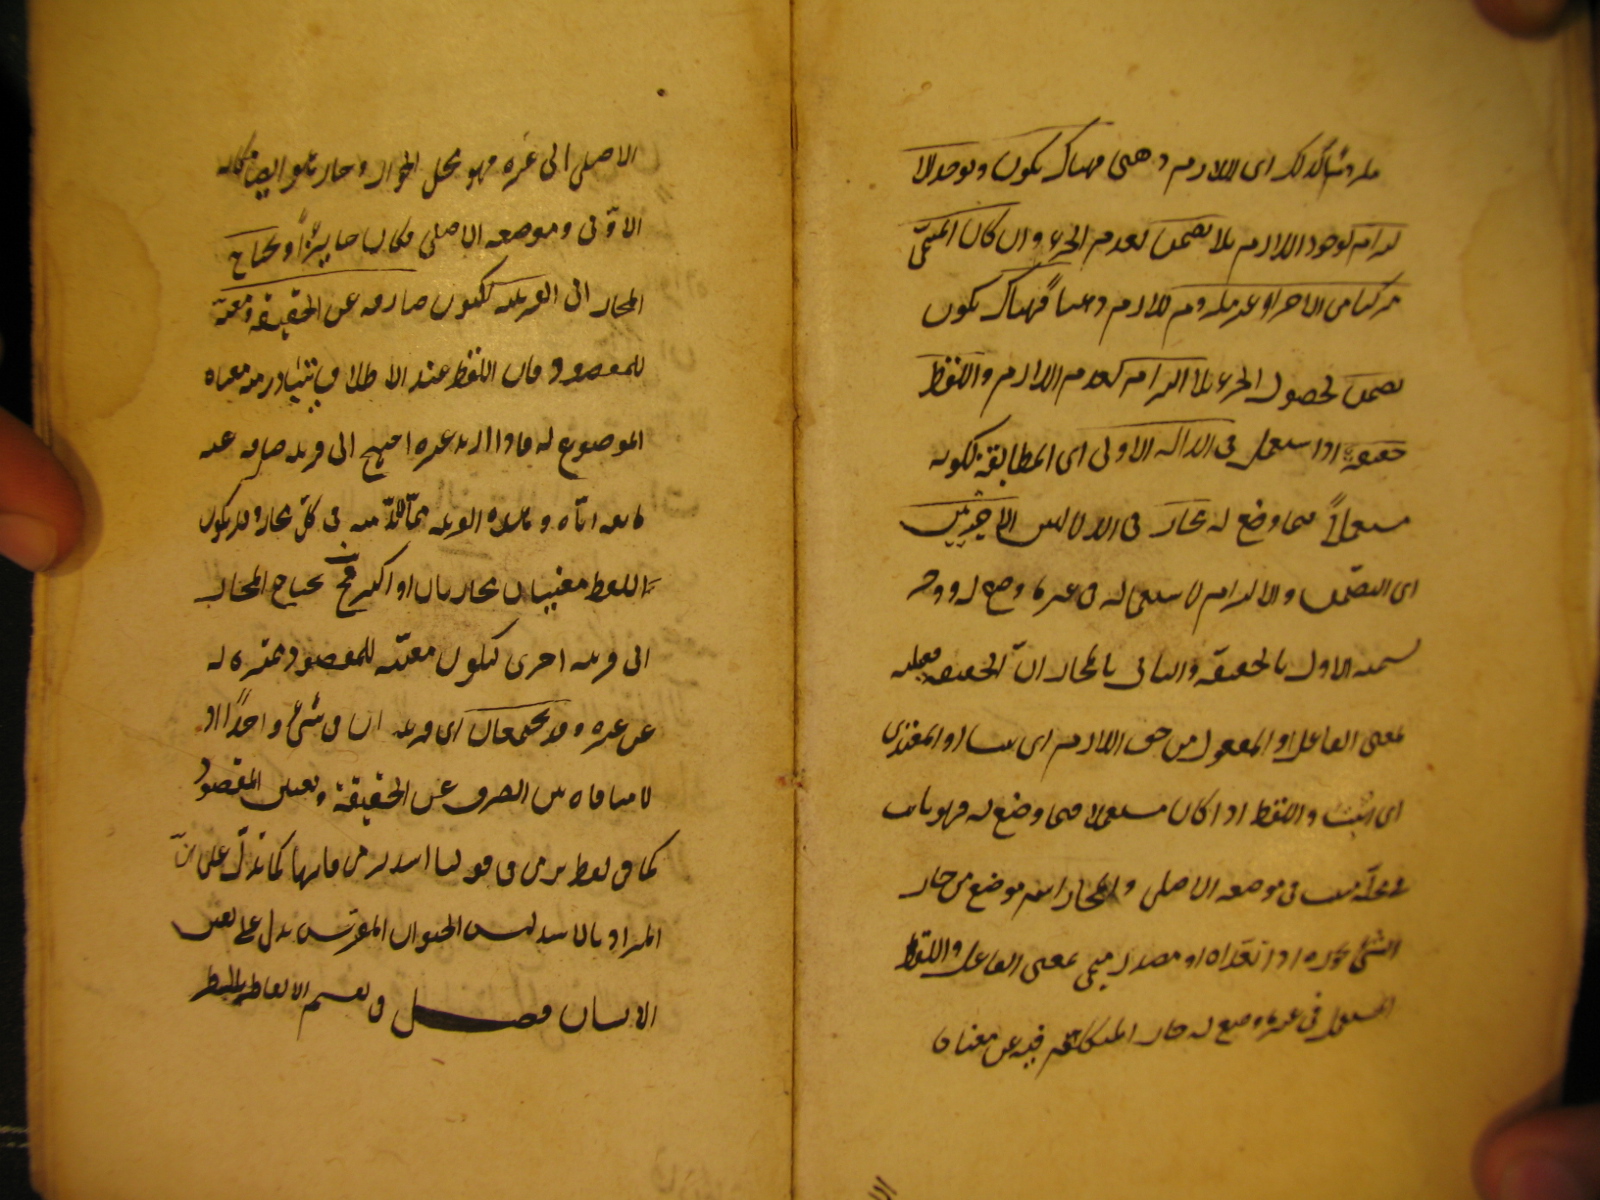 ملزوما كذلك اى اللازم ذهنى فهناك يكون ويوجد لا
لتزام لوجود اللازم بلا تضمن لعدم الجزء وان كان المسمى
مركبا من الاجزاء وغير ملزوم للازم ذهنيا فهناك يكون
تضمن لحصول الجزء بلا التزام لعدم اللازم واللفظ
حقيقة اذا استعمل فى الدلالة الاولى اى المطابقة لكونه
مستعملاً فيما وضع له مجاز فى الدلالتين الاخيرتين
اى التضمن والالتزام لاستعماله فى غير ما وضع له ووجه
تسمية الاول بالحقيقة والثانى بالمجاز انّ الحقيقة فعيلة
بمعنى الفاعل او المفعول من حق اللازم اى ثبت او المتعدى
اى اثبت واللفظ اذا كان مستعملا فيما وضع له فهو ثابت
فى محلّه مثبت فى موضعه الاصلى والمجاز اسم موضع من جاز
الشئ يجوزه اذا تعداه او مصدر ميمى بمعنى الفاعل واللفظ
المستعمل فى غير ما وضع له جاز المتكلم فيه عن معناه
الاصلى الى غيره فهو محل الجواز وجاز هو ايضا مكانه
الاوّلى وموضعه الاصلى فكان جايزًا ويحتاج
المجاز الى القرينة لتكون صارفة عن الحقيقة ومعينة
للمقصود فان اللفظ عند الاطلاق يتبادر منه معناه
الموضوع له فاذا اريد غيره احتيج الى قرينة صارفة عنه
مانعه اياه وهذه القرينة ممّا لابدّ منه فى كلّ مجاز وقد يكون
للفظ معنييان مجازيان او اكثر فح يحتاج المجاز
الى قرينة اخرى لتكون معينة للمقصود مميزة له
عن غيره وقد يجتمعان اى قرينتان فى شئ واحد اذ
لا منافاة بين الصرف عن الحقيقة وتعيين المقصود
كما فى لفظ يرمى فى قولنا اسد يرمى فانها كما تدلّ على انّ
المراد بالاسد ليس الحيوان المفترس يدل على تعيين
الانسان فصل فى تقسيم الالفاظ بالنظر